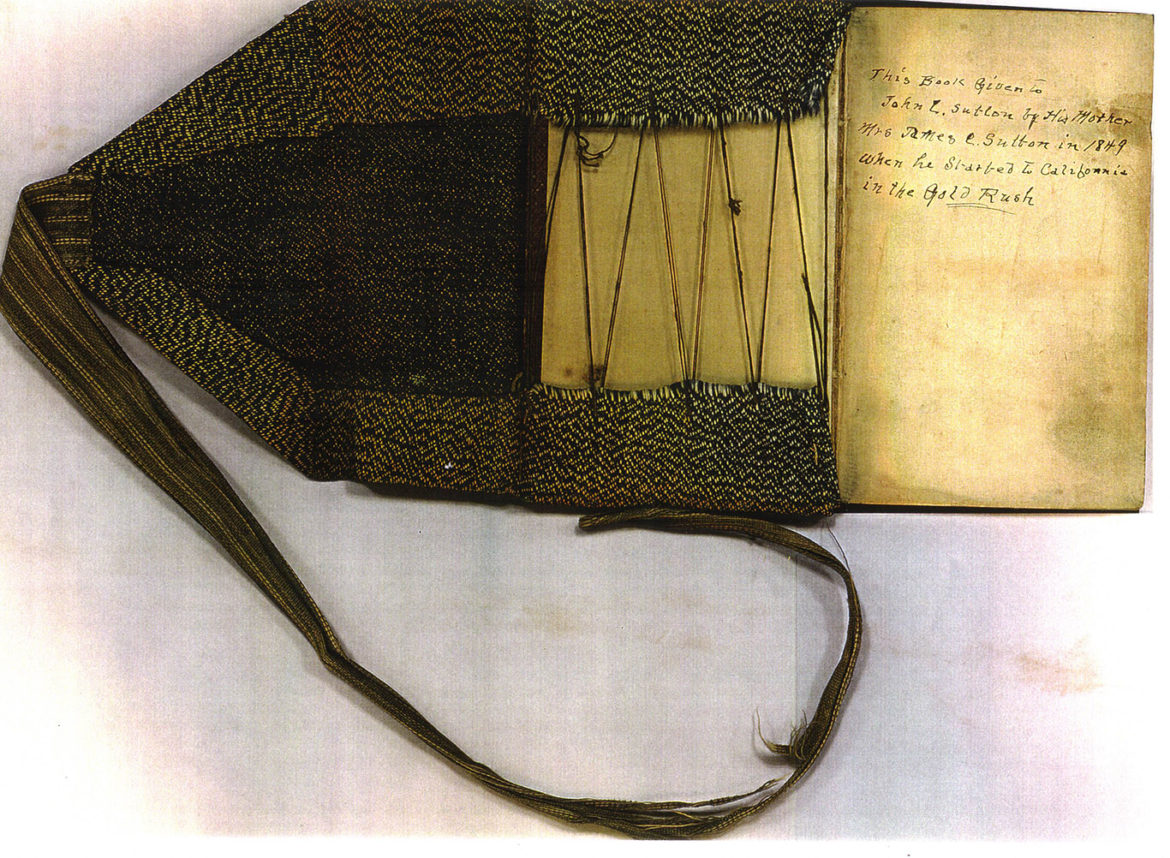 This Book Given to
John L. Sutton by His Mother
Mrs James C. Sutton in 1849
when he Started to California
in the Gold Rush